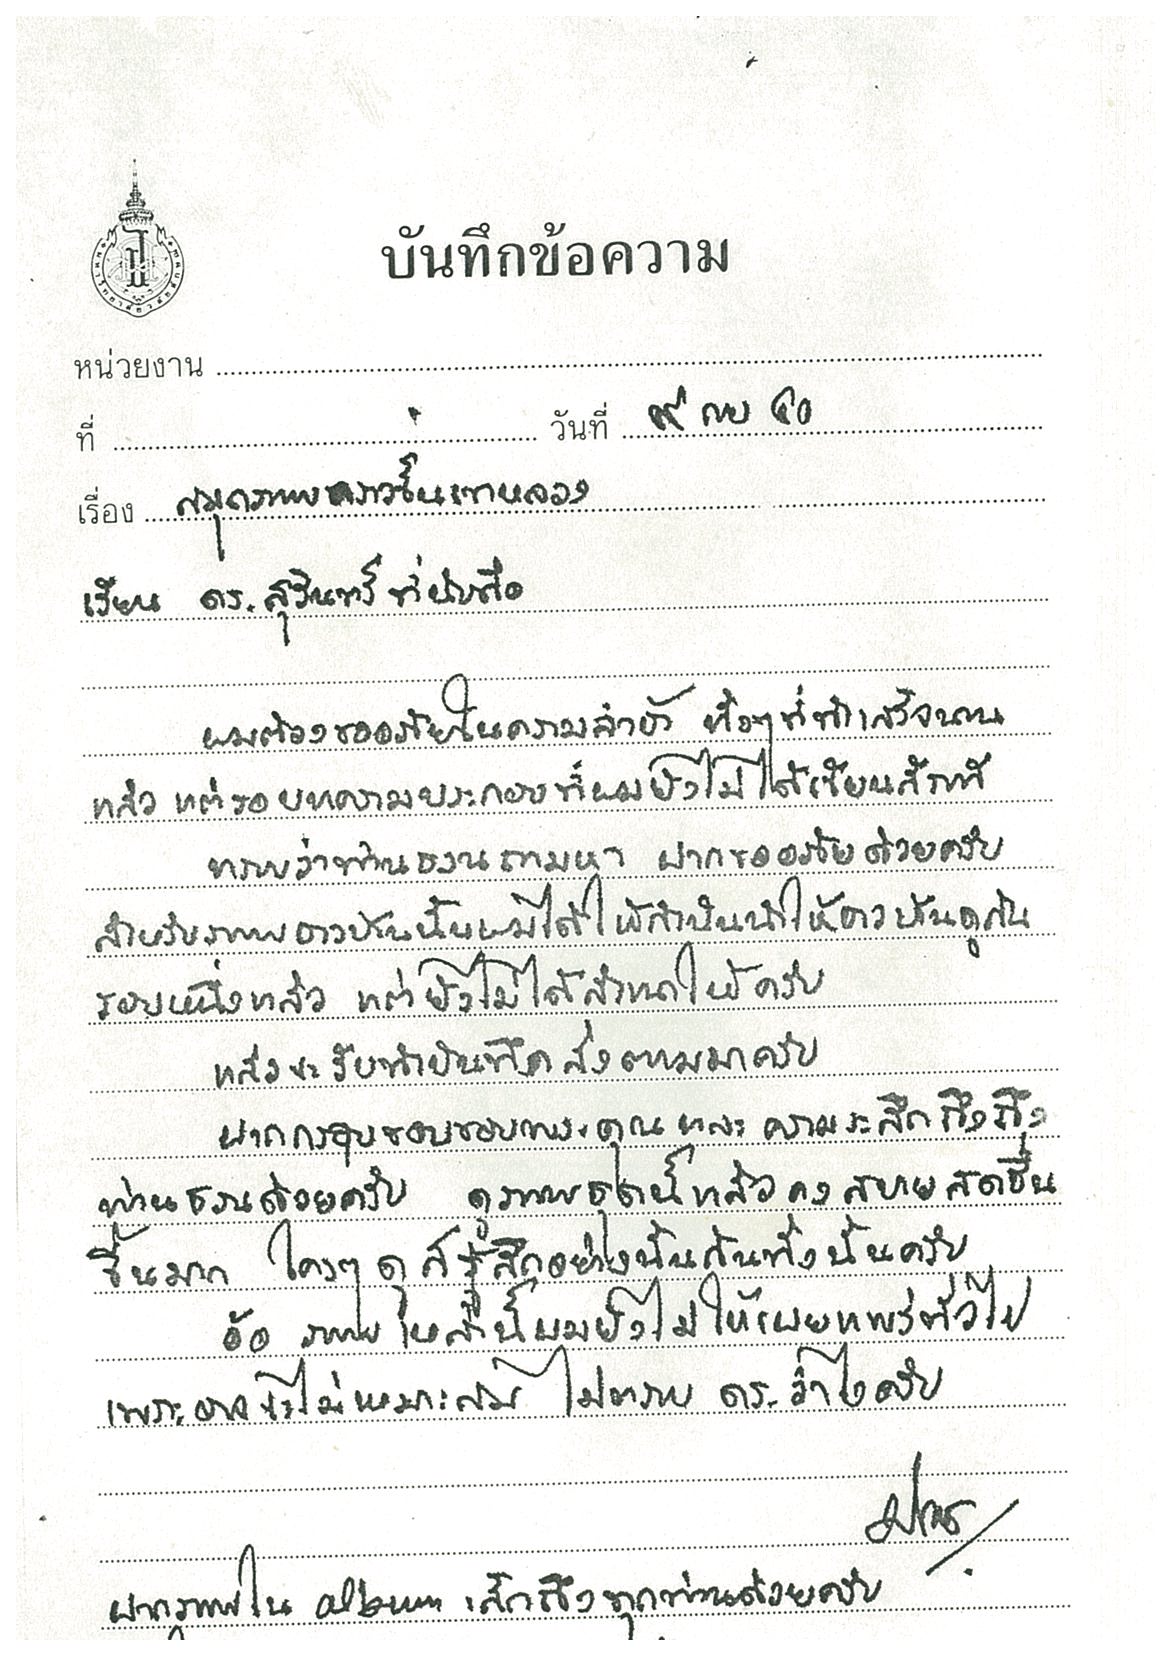 บันทึกข้อความ
หน่วยงาน
ที่ วันที่ ๙ กย ๔๐
เรื่อง สมุดภาพคราวขึ้นเขาหลวง
เรียน ดร.สุรินทร์ ที่นับถือ
ผมต้องขออภัยในความล่าช้า ทั้งๆ ที่ทำเสร็จนาน
แล้ว แต่รอบทความประกอบที่ผมยังไม่ได้เขียนสักที
ทราบว่าท่าน ถามหา ฝากขออภัยด้วยครับ
สำหรับภาพชาวบ้านนั้นผมได้ให้กำนันนำให้ชาวบ้านดูกัน
รอบหนึ่งแล้ว แต่ยังไม่ได้สำเนาให้ครับ
แล้วจะรีบทำบันทึกส่งตามมาครับ
ฝากกราบขอบขอบพระคุณ และ ความระลึกถึงถึง
ท่าน ด้วยครับ ดูภาพชุดนี้แล้วคงสบายสดชื่น
ขึ้นมาก ใครๆ ดูก็รู้สึกอย่างนั้นกันทั้งนั้นครับ
อ้อ ภาพเหล่านี้ผมยังไม่ให้เผยแพร่ทั่วไป
เพราะอาจจะไม่เหมาะสม ไม่ทราบ ดร.ว่าไงครับ
ฝากภาพใน album ระลึกถึงทุกท่านด้วยครับ